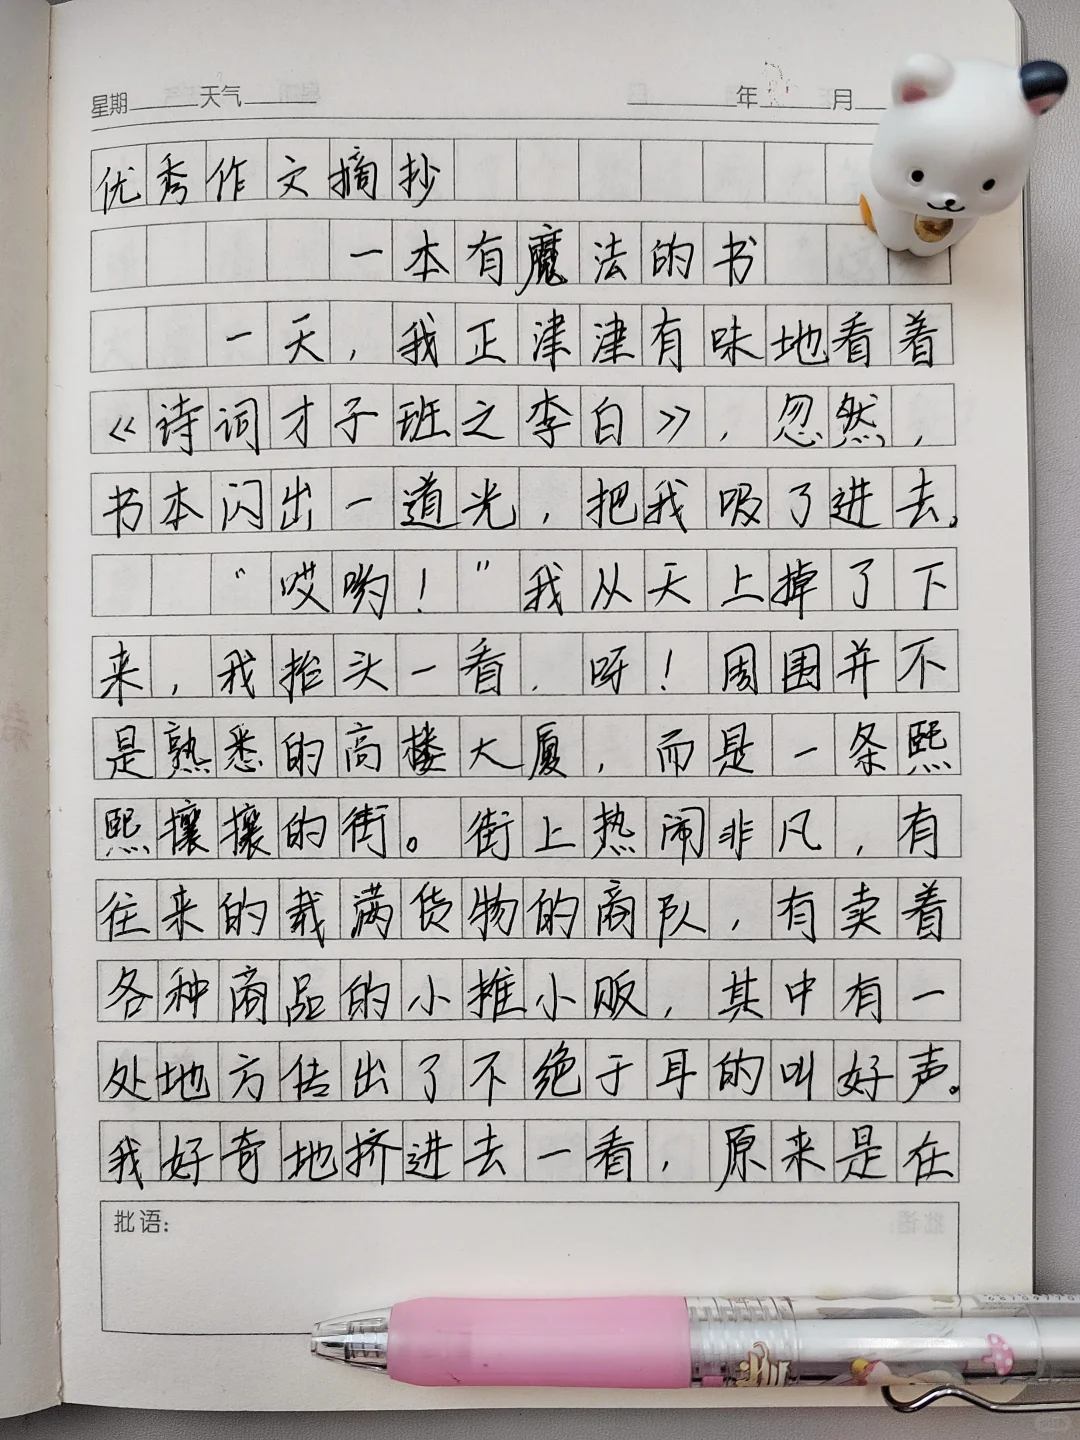 星期 天气 年 月
优秀作文摘抄
一本有魔法的书
一天，我正津津有味地看着
《诗词才子班之李白》，忽然，
书本闪出一道光，把我吸了进去。
“哎哟！”我从天上掉了下
来，我抬头一看，呀！周围并不
是熟悉的高楼大厦，而是一条熙
熙攘攘的街。街上热闹非凡，有
往来的载满货物的商队，有卖着
各种商品的小摊小贩，其中有一
处地方传出了不绝于耳的叫好声。
我好奇地挤进去一看，原来是在
批语：